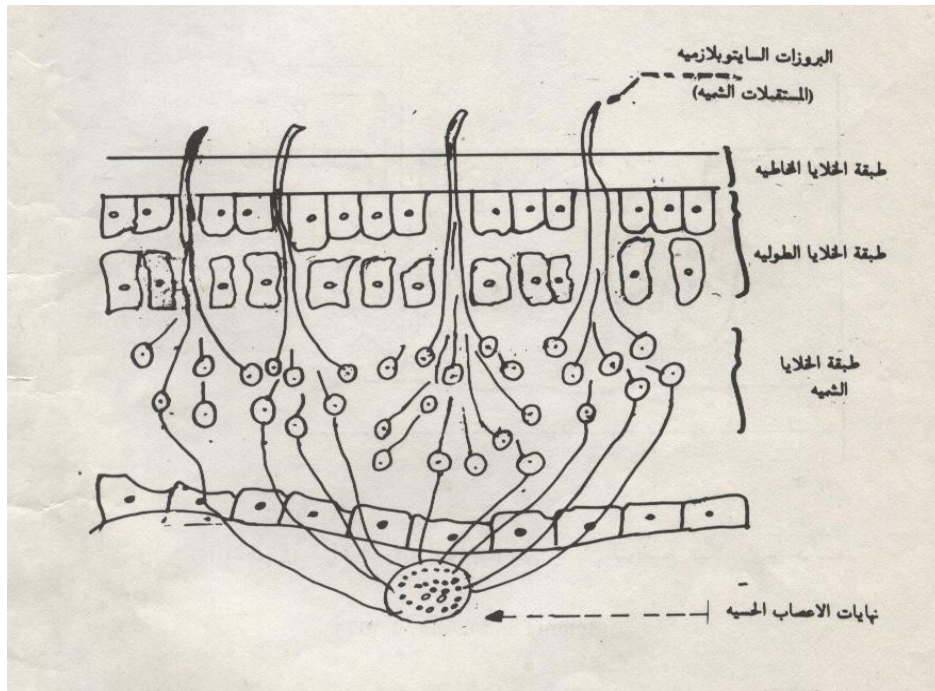 البروزات السايتوبلازميه
(المستقبلات الشميه)
طبقة الخلايا المخاطيه
طبقة الخلايا الطوليه
طبقة الخلايا
الشميه
نهايات الاعصاب الحسيه